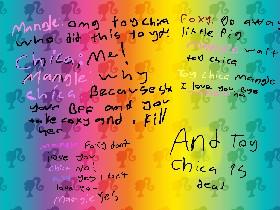 Mangle: omg toy chica
who did this to you
Chica: Me!
Mangle: why
chica: Because
your BFF and you
take foxy and i kill
her
Foxy: Go away
little pig
wait
toy chica
Toy chica mangle
I love you bye
mangle Foxy don't
love you
chica no!
yes I don't
love
Mangle Yes
And Toy
Chica is
dead